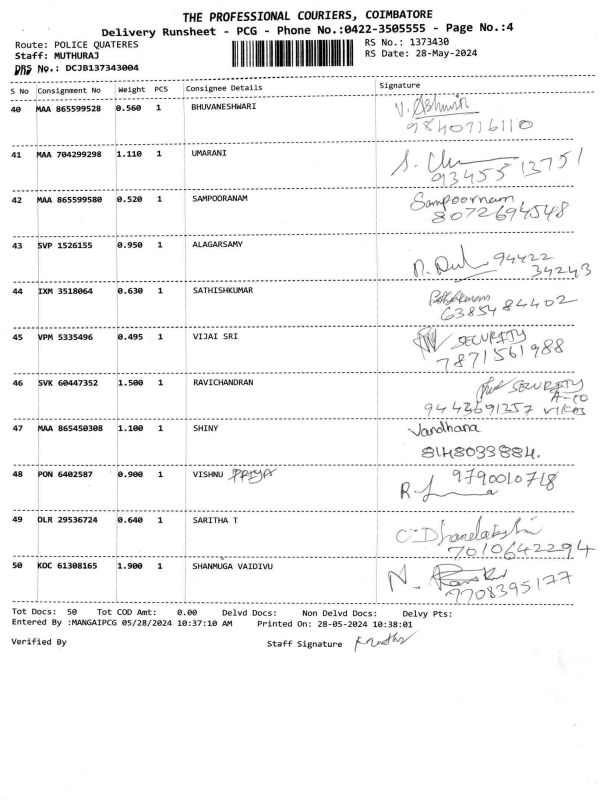 THE PROFESSIONAL COURIERS, COIMBATORE
Delivery Runsheet - PCG - Phone No.:0422-3505555 - Page No.:4
Route: POLICE QUATERES RS No.: 1373430
Staff: MUTHURAJ RS Date: 28-May-2024
DRS No.: DCJB137343004
S No Consignment No Weight PCS Consignee Details Signature
40 MAA 865599528 0.560 1 BHUVANESHWARI
9840716110
41 MAA 704299298 1.110 1 UMARANI
9345513751
42 MAA 865599580 0.520 1 SAMPOORANAM Sampoornam
8072694548
43 SVP 1526155 0.950 1 ALAGARSAMY 94422
34243
44 IXM 3518064 0.630 1 SATHISHKUMAR
6385484402
45 VPM 5335496 0.495 1 VIJAI SRI SECURITY
7871561988
46 SVK 60447352 1.500 1 RAVICHANDRAN SECURITY
9443691357
47 MAA 865450308 1.100 1 SHINY Vandhana
8148033884.
48 PON 6402587 0.900 1 VISHNU PRIYA 9790010718
49 OLR 29536724 0.640 1 SARITHA T
7010642294
50 KOC 61308165 1.900 1 SHANMUGA VAIDIVU
7708395177
Tot Docs: 50 Tot COD Amt: 0.00 Delvd Docs: Non Delvd Docs: Delvy Pts:
Entered By :MANGAIPCG 05/28/2024 10:37:10 AM Printed On: 28-05-2024 10:38:01
Verified By Staff Signature